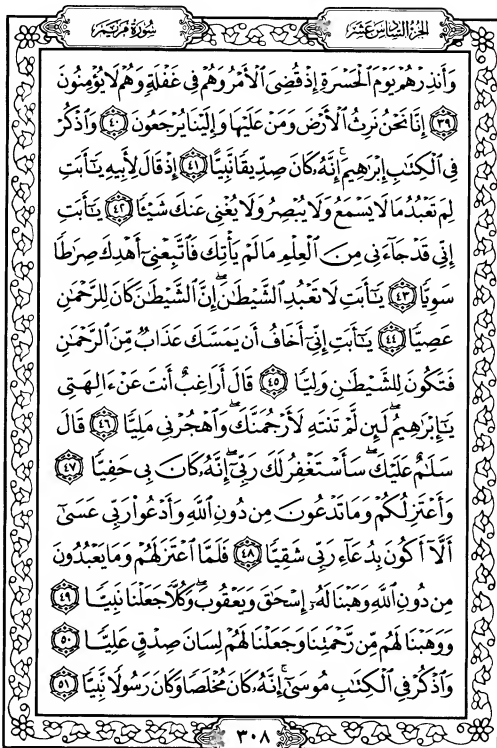 الجُزءُ السَّادِسَ عَشَرَ
سُورَةُ مَرْيَمَ
وَأَنذِرْهُمْ يَوْمَ ٱلْحَسْرَةِ إِذْ قُضِىَ ٱلْأَمْرُ وَهُمْ فِى غَفْلَةٍ وَهُمْ لَا يُؤْمِنُونَ
٣٩ إِنَّا نَحْنُ نَرِثُ ٱلْأَرْضَ وَمَنْ عَلَيْهَا وَإِلَيْنَا يُرْجَعُونَ ٤٠ وَٱذْكُرْ
فِى ٱلْكِتَٰبِ إِبْرَٰهِيمَ ۚ إِنَّهُۥ كَانَ صِدِّيقًا نَّبِيًّا ٤١ إِذْ قَالَ لِأَبِيهِ يَٰٓأَبَتِ
لِمَ تَعْبُدُ مَا لَا يَسْمَعُ وَلَا يُبْصِرُ وَلَا يُغْنِى عَنكَ شَيْـًٔا ٤٢ يَٰٓأَبَتِ
إِنِّى قَدْ جَآءَنِى مِنَ ٱلْعِلْمِ مَا لَمْ يَأْتِكَ فَٱتَّبِعْنِىٓ أَهْدِكَ صِرَٰطًا
سَوِيًّا ٤٣ يَٰٓأَبَتِ لَا تَعْبُدِ ٱلشَّيْطَٰنَ ۖ إِنَّ ٱلشَّيْطَٰنَ كَانَ لِلرَّحْمَٰنِ
عَصِيًّا ٤٤ يَٰٓأَبَتِ إِنِّىٓ أَخَافُ أَن يَمَسَّكَ عَذَابٌ مِّنَ ٱلرَّحْمَٰنِ
فَتَكُونَ لِلشَّيْطَٰنِ وَلِيًّا ٤٥ قَالَ أَرَاغِبٌ أَنتَ عَنْ ءَالِهَتِى
يَٰٓإِبْرَٰهِيمُ ۖ لَئِن لَّمْ تَنتَهِ لَأَرْجُمَنَّكَ ۖ وَٱهْجُرْنِى مَلِيًّا ٤٦ قَالَ
سَلَٰمٌ عَلَيْكَ ۖ سَأَسْتَغْفِرُ لَكَ رَبِّىٓ ۖ إِنَّهُۥ كَانَ بِى حَفِيًّا ٤٧
وَأَعْتَزِلُكُمْ وَمَا تَدْعُونَ مِن دُونِ ٱللَّهِ وَأَدْعُوا۟ رَبِّى عَسَىٰٓ
أَلَّآ أَكُونَ بِدُعَآءِ رَبِّى شَقِيًّا ٤٨ فَلَمَّا ٱعْتَزَلَهُمْ وَمَا يَعْبُدُونَ
مِن دُونِ ٱللَّهِ وَهَبْنَا لَهُۥٓ إِسْحَٰقَ وَيَعْقُوبَ ۖ وَكُلًّا جَعَلْنَا نَبِيًّا ٤٩
وَوَهَبْنَا لَهُم مِّن رَّحْمَتِنَا وَجَعَلْنَا لَهُمْ لِسَانَ صِدْقٍ عَلِيًّا ٥٠
وَٱذْكُرْ فِى ٱلْكِتَٰبِ مُوسَىٰٓ ۚ إِنَّهُۥ كَانَ مُخْلَصًا وَكَانَ رَسُولًا نَّبِيًّا ٥١
٣٠٨